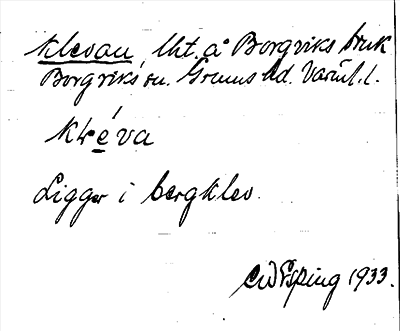 Klevan lht. å Borgviks bruk
Borgviks sn. Grums hd. Värml. l.
Klé̱va
Ligger i bergklev.
CW Esping 1933.